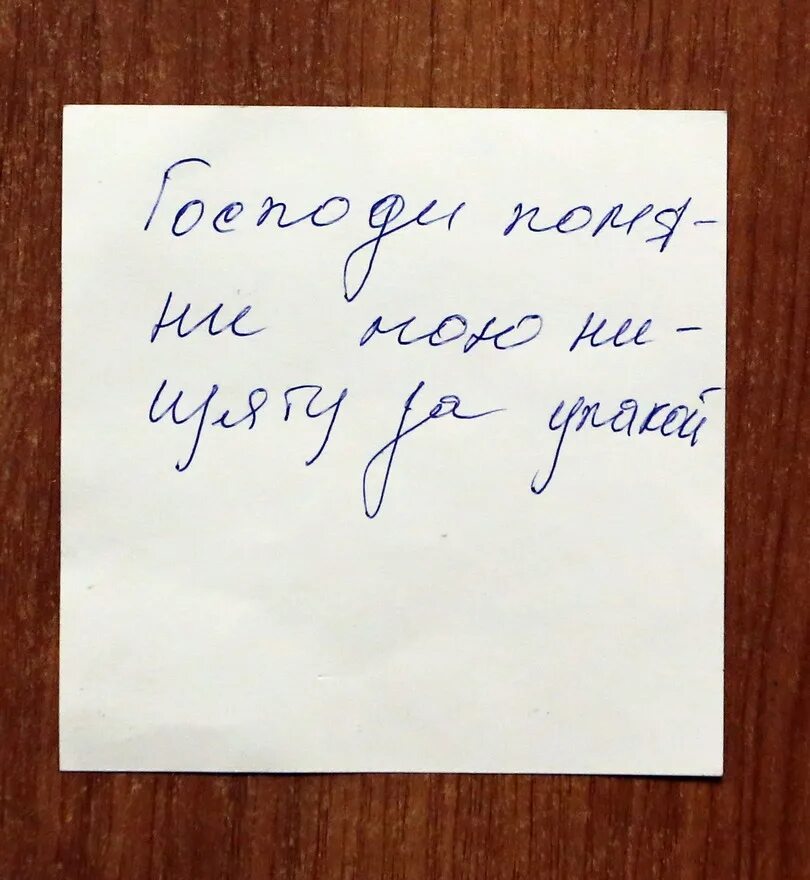 Господи помя-
ни мою ни-
щяту за упакой